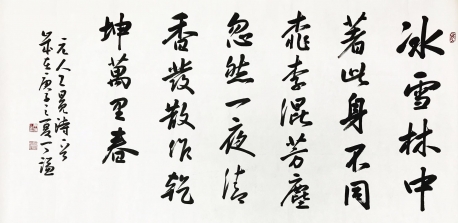 冰雪林中
著此身不同
桃李混芳塵
忽然一夜清
香發散作乾
坤萬里春
元人王冕詩一首
歲在庚子之夏一謙